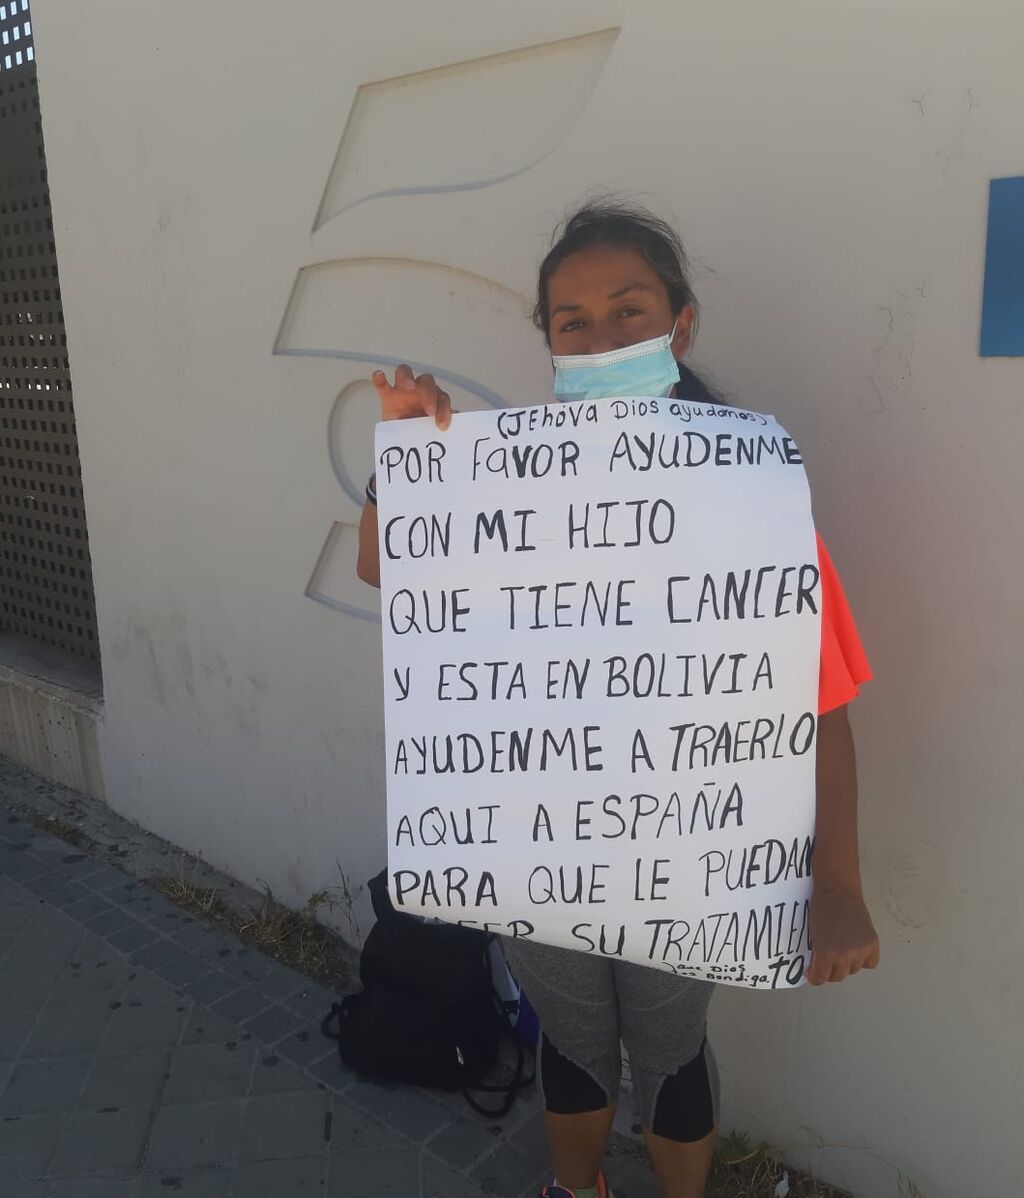 (JEhóva Dios ayudanos)
POR FaVOR AYUDENME
CON MI HIJO
QUE TIENE CANCER
y ESTA EN BOLIVIA
AYUDENME A TRAERLO
AQUI A ESPAÑA
PARA QUE LE PUEDAN
SU TRATAMIEN
TO
Dios
Bendiga